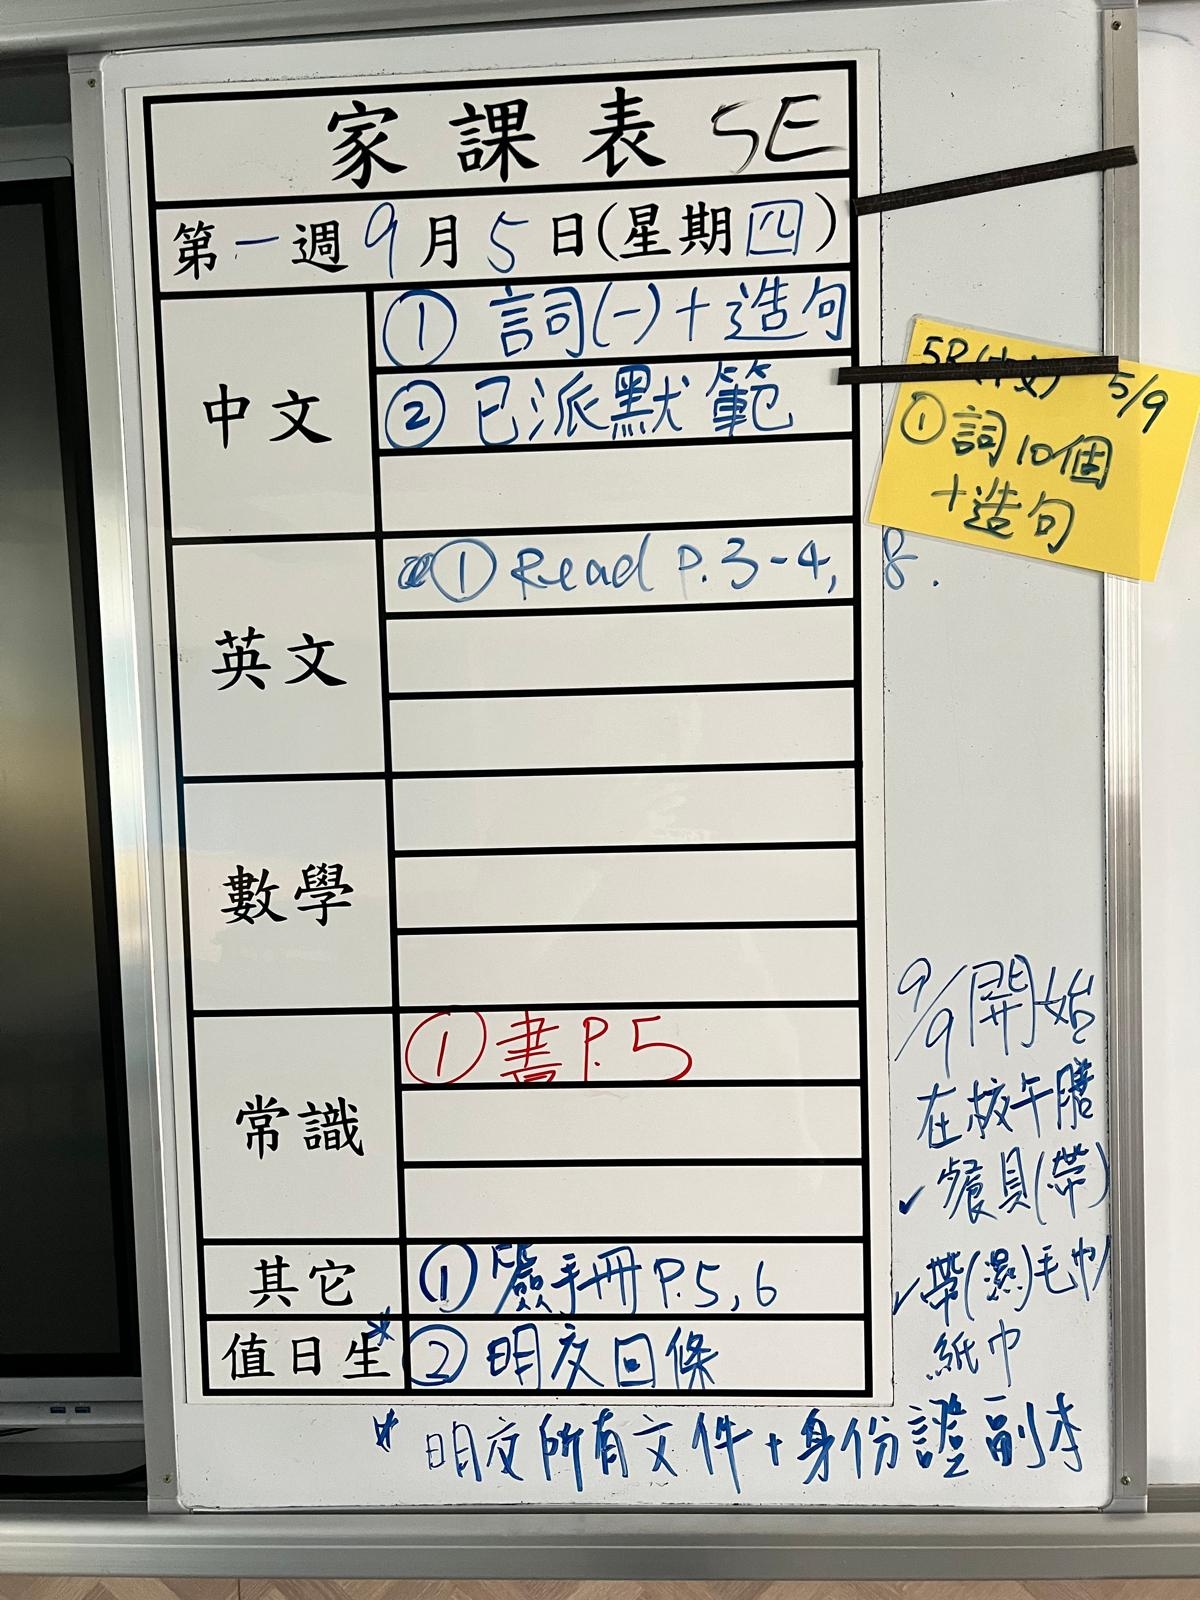 家課表 5E
第一週9月5日(星期四)
中文
① 詞(一)+造句
② 已派默範
英文
① Read P.3-4, 8.
數學
常識
① 書P.5
其它
① 簽手冊P.5,6
值日生
* ② 明交回條
* 明交所有文件+身份證副本
5R(中文) 5/9
① 詞10個
+造句
9/9開始
在校午膳
✓餐具(帶)
✓帶(濕)毛巾/
紙巾